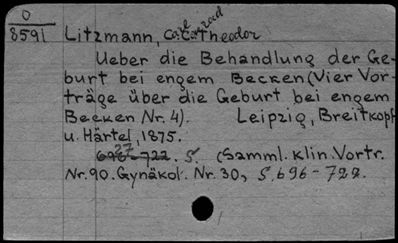 O
8591
Litzmann, Carl Conrad Theodor
Ueber die Behandlung der Ge-
burt bei engem Becken (Vier Vor-
träge über die Geburt bei engem
Becken Nr. 4). Leipzig, Breitkopf
u. Härtel, 1875.
27. S. (Samml. klin. Vortr.
Nr. 90. Gynäkol. Nr. 30, S. 696-722.